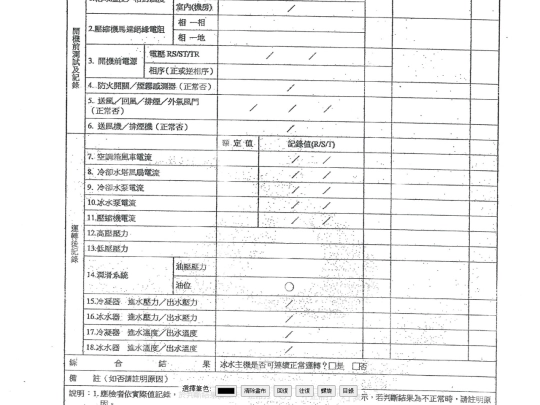 室內(機房) /
開機前測試及記錄
2.壓縮機馬達絕緣電阻
相 一相
相 一地
3. 開機前電源
電壓 RS/ST/TR / /
相序(正或逆相序)
4. 防火開關/煙霧感測器(正常否) /
5. 送風/回風/排煙/外氣風門
(正常否) / / /
6. 送風機/排煙機(正常否) /
額 定 值 記錄值(R/S/T)
運轉後記錄
7. 空調機風車電流 / /
8. 冷卻水塔風扇電流 / /
9. 冷卻水泵電流 / /
10.冰水泵電流 / /
11.壓縮機電流 / /
12.高壓壓力
13.低壓壓力
14.潤滑系統
油壓壓力
油位 ○
15.冷凝器 進水壓力/出水壓力 /
16.冰水器 進水壓力/出水壓力 /
17.冷凝器 進水溫度/出水溫度 /
18.冰水器 進水溫度/出水溫度 /
綜 合 結 果 冰水主機是否可連續正常運轉?□是 □否
備 註(如否請註明原因)
說明:1.應檢者依實際值記錄,
選擇筆色:
清除畫布
回復
往復
螺旋
目錄
示,若判斷結果為不正常時,請註明原
因。